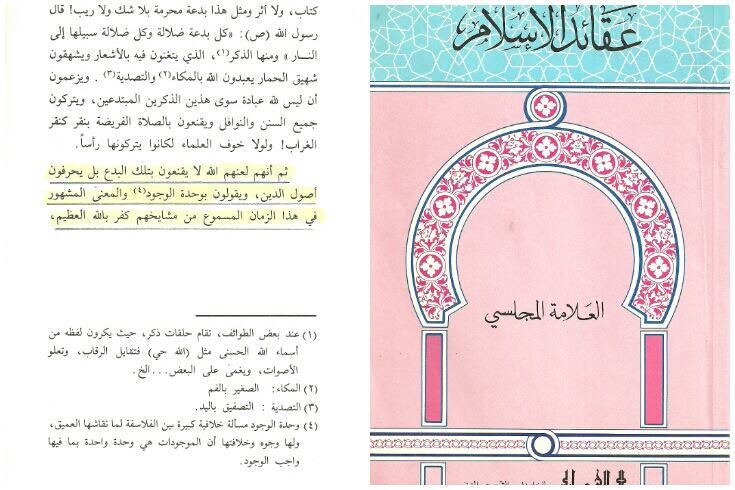 كتاب، ولا أثر ومثل هذا بدعة محرمة بلا شك ولا ريب! قال
رسول الله (ص): «كل بدعة ضلالة وكل ضلالة سبيلها إلى
النار» ومنها الذكر(١)، الذي يتغنون فيه بالأشعار ويشهقون
شهيق الحمار يعبدون الله بالمكاء(٢) والتصدية(٣). ويزعمون
أن ليس لله عبادة سوى هذين الذكرين المبتدعين، ويتركون
جميع السنن والنوافل ويقنعون بالصلاة الفريضة بنقر كنقر
الغراب! ولولا خوف العلماء لكانوا يتركونها رأساً.
ثم أنهم لعنهم الله لا يقنعون بتلك البدع بل يحرفون
أصول الدين، ويقولون بوحدة الوجود(٤) والمعنى المشهور
في هذا الزمان المسموع من مشايخهم كفر بالله العظيم،
(١) عند بعض الطوائف، تقام حلقات ذكر، حيث يكررون لفظه من
أسماء الله الحسنى مثل (الله حي) فتتقابل الرقاب، وتعلو
الأصوات، ويغمى على البعض...الخ.
(٢) المكاء: الصغير بالفم
(٣) التصدية: التصفيق باليد.
(٤) وحدة الوجود مسألة خلافية كبيرة بين الفلاسفة لما نقاشها العميق،
ولها وجوه وخلافتها أن الموجودات هي وحدة واحدة بما فيها
واجب الوجود.
عقائد الإسلام
العلامة المجلسي